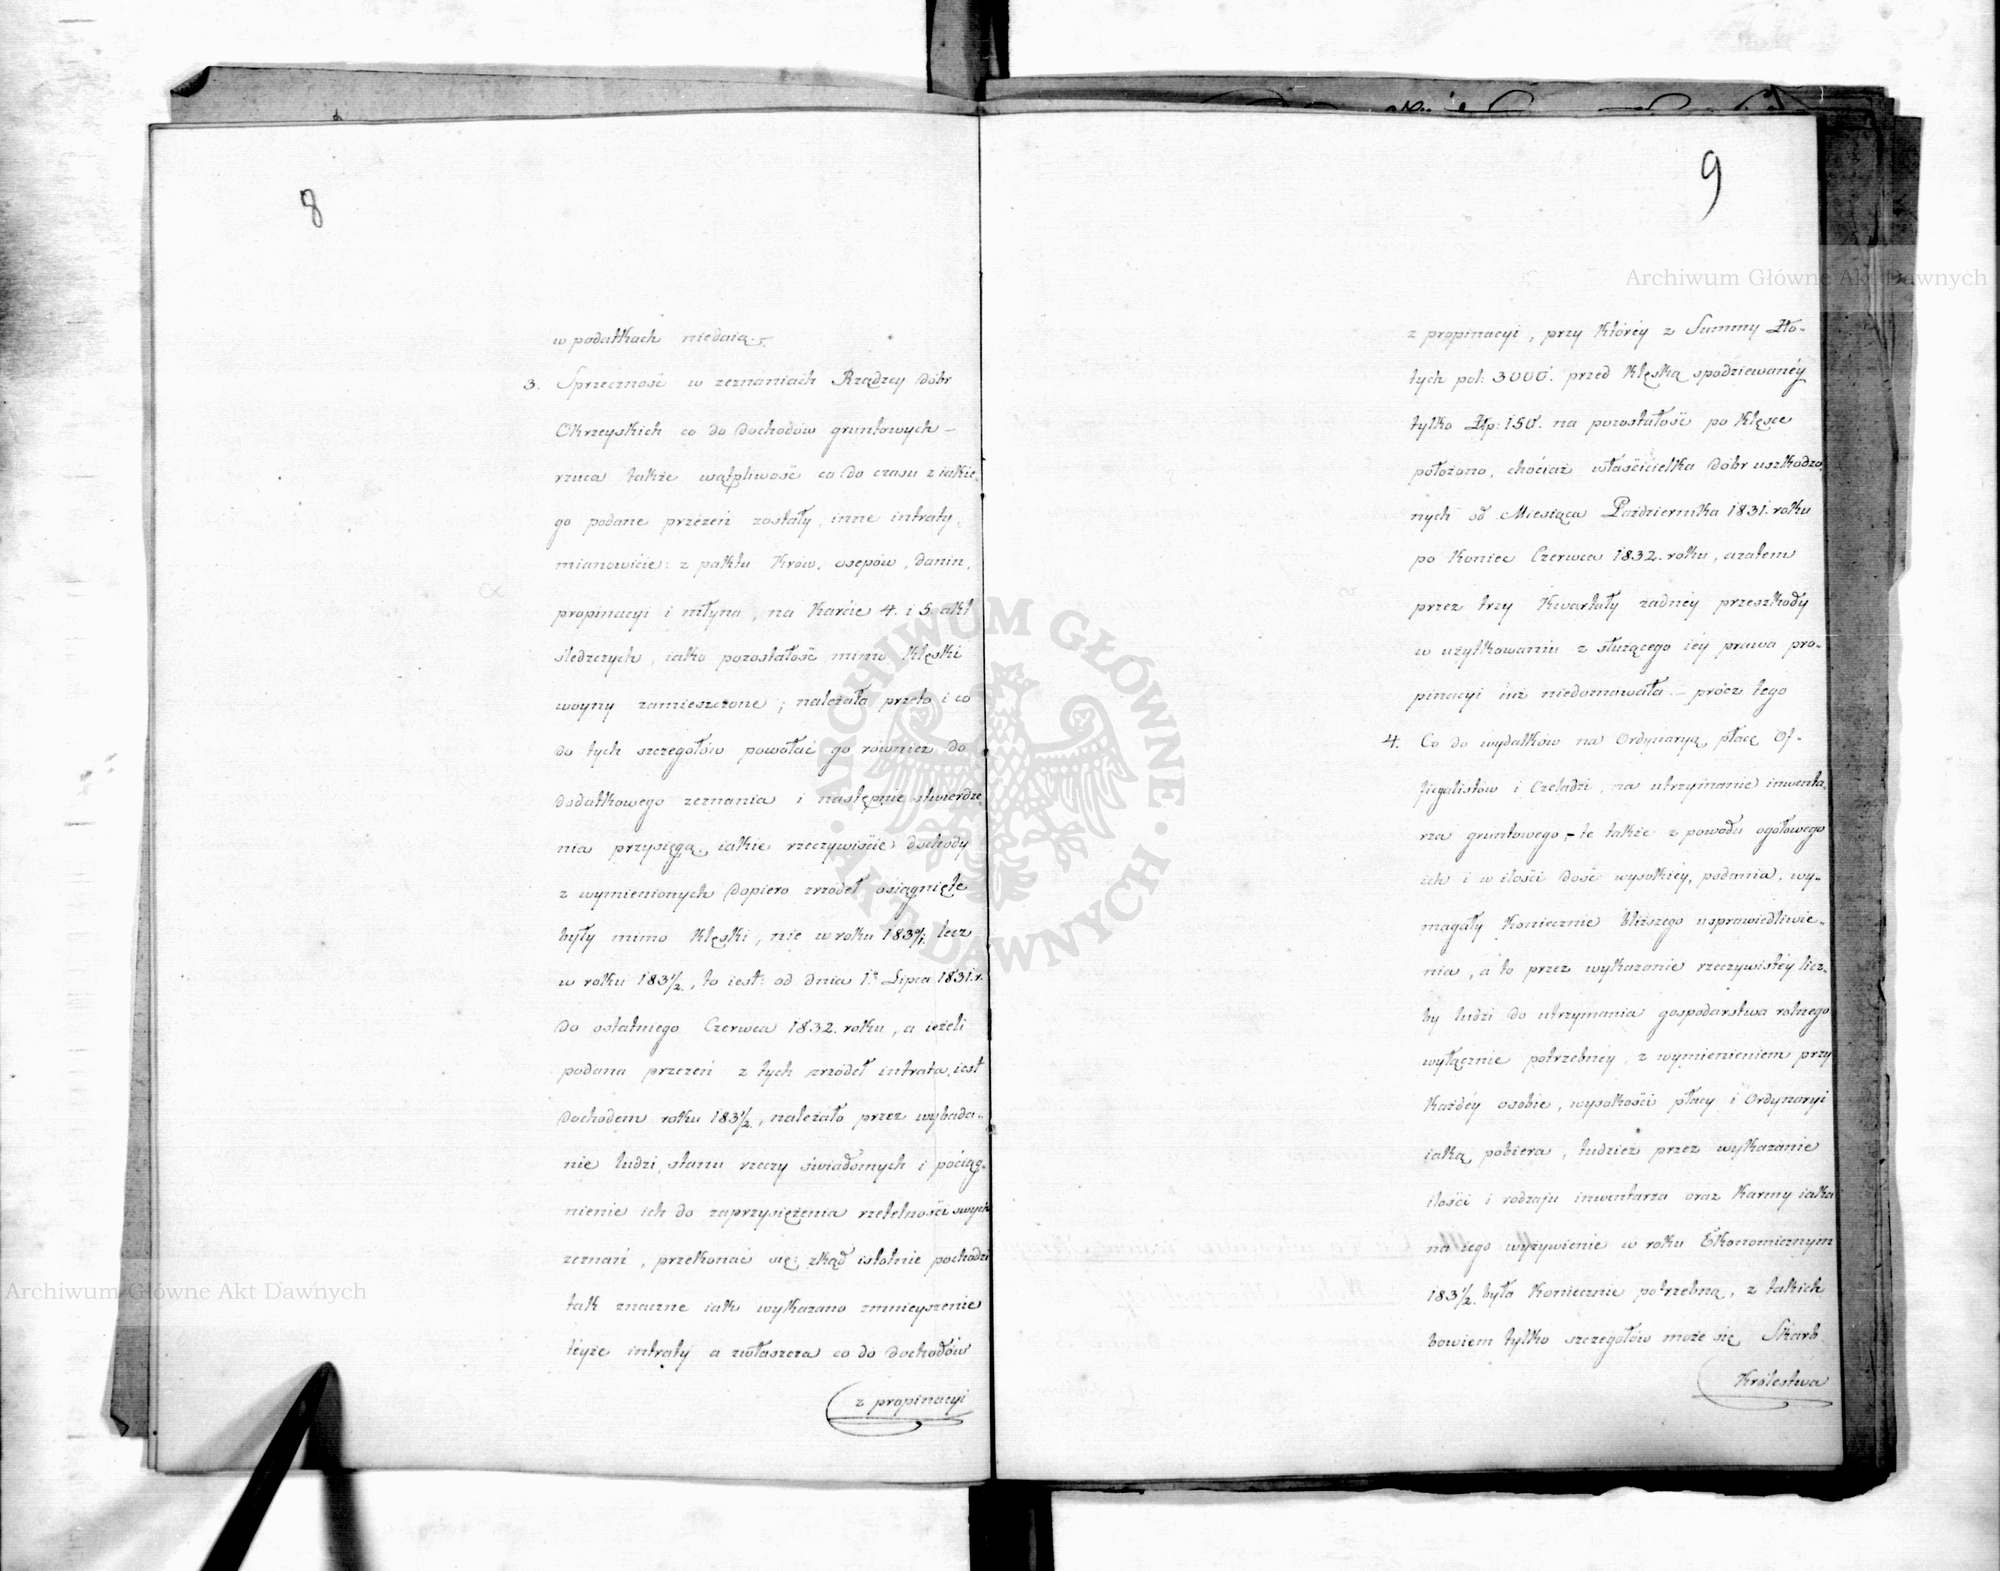 8
w podatkach niedaią.
3. Sprzeczność w zeznaniach Rządzcy Dóbr
Okrzeyskich co do dochodów gruntowych –
rzuca także wątpliwość co do czasu z iakie-
go podane przezeń zostały inne intraty,
mianowicie: z paktu Krów, osepów, danin,
propinacyi i młyna, na Karcie 4. i 5. akt
śledczych, iako pozostałość mimo Klęski
woyny zamieszczone; należało przeto i co
do tych szczegółów powołać go również do
dodatkowego zeznania i następnie stwierdze-
nia przysięgą, iakie rzeczywiście dochody
z wymienionych dopiero źrzódeł osiągnięte
były mimo Klęski, nie w roku 1830/1, lecz
w roku 1831/2, to iest: od dnia 1. Lipca 1831. r.
do ostatniego Czerwca 1832. roku, a ieżeli
podana przezeń z tych źrzódeł intrata, iest
dochodem roku 1831/2, należało przez wybada-
nie ludzi, stanu rzeczy świadomych i pociąg-
nienie ich do zaprzysiężenia rzetelności swych
zeznań, przekonać się: zkąd istotnie pochodzi
tak znaczne iak wykazano zmnieyszenie
teyże intraty a zwłaszcza co do dochodów
z propinacyi
9
z propinacyi, przy któréy z Summy Zło-
tych pol: 3000. przed Klęską spodziewanéy
tylko Złp: 150. na pozostałość po Klęsce
położono, chociaż właścicielka dóbr uszkodzo-
nych od Miesiąca Października 1831. roku
po Koniec Czerwca 1832. roku, azatem
przez trzy Kwartały żadnéy przeszkody
w użytkowaniu z służącego iéy prawa pro-
pinacyi iuż niedoznawała. – prócz tego
4. Co do wydatków na Ordynaryą, płacę Of-
ficyalistów i Czeladzi, na utrzymanie inwenta-
rza gruntowego, – te także z powodu ogółowego
ich i w ilości dość wysokiéy, podania, wy-
magały Koniecznie bliższego usprawiedliwie-
nia, a to przez wykazanie rzeczywistéy licz-
by ludzi do utrzymania gospodarstwa rolnego
wyłącznie potrzebnéy, z wymienieniem przy
Każdéy osobie, wysokości płacy i Ordynaryi
iaką pobiera, tudzież przez wykazanie
ilości i rodzaju inwentarza oraz Karmy iaka
na iego wyżywienie w roku Ekonomicznym
1831/2. była Koniecznie potrzebną, z takich
bowiem tylko szczegółów może się Skarb
Królestwa
Archiwum Główne Akt Dawnych
Archiwum Główne Akt Dawnych
ARCHIWUM GŁÓWNE · AKT DAWNYCH ·